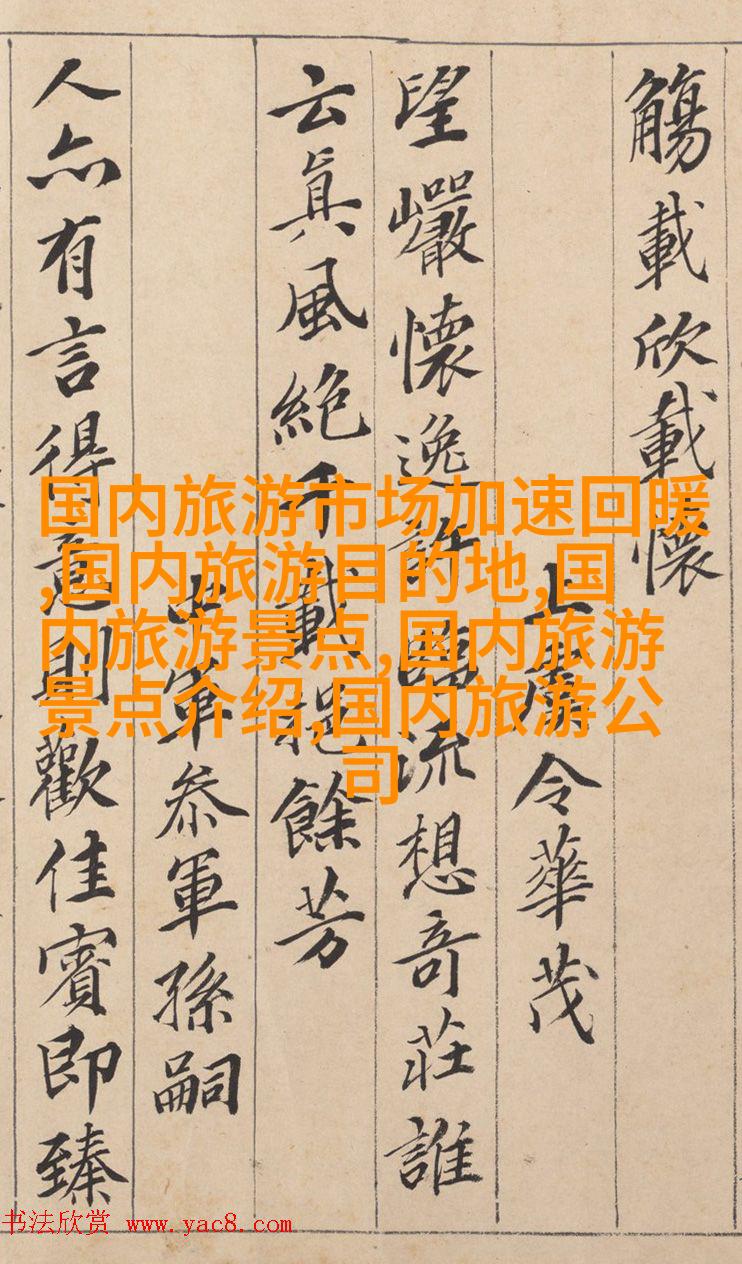 觴載欣載懷
上虞令華茂
望巖懷逸許臨流想奇莊誰
云眞風絕千載挹餘芳
中軍叅軍孫嗣
人亦有言得意則歡佳賓即臻
国内旅游市场加速回暖
,国内旅游目的地,国
内旅游景点,国内旅游
景点介绍,国内旅游公
司
书法欣赏 www.yac8.com